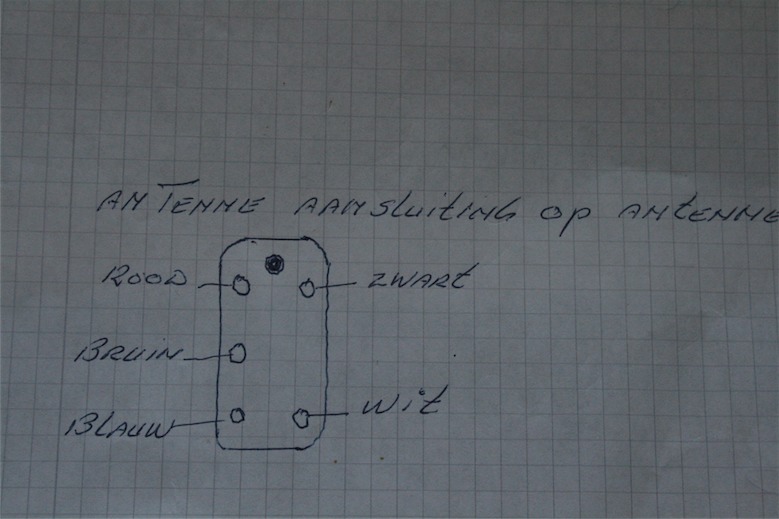 ANTENNE AANSLUITING OP ANTENNE
ROOD ZWART
BRUIN
BLAUW WIT